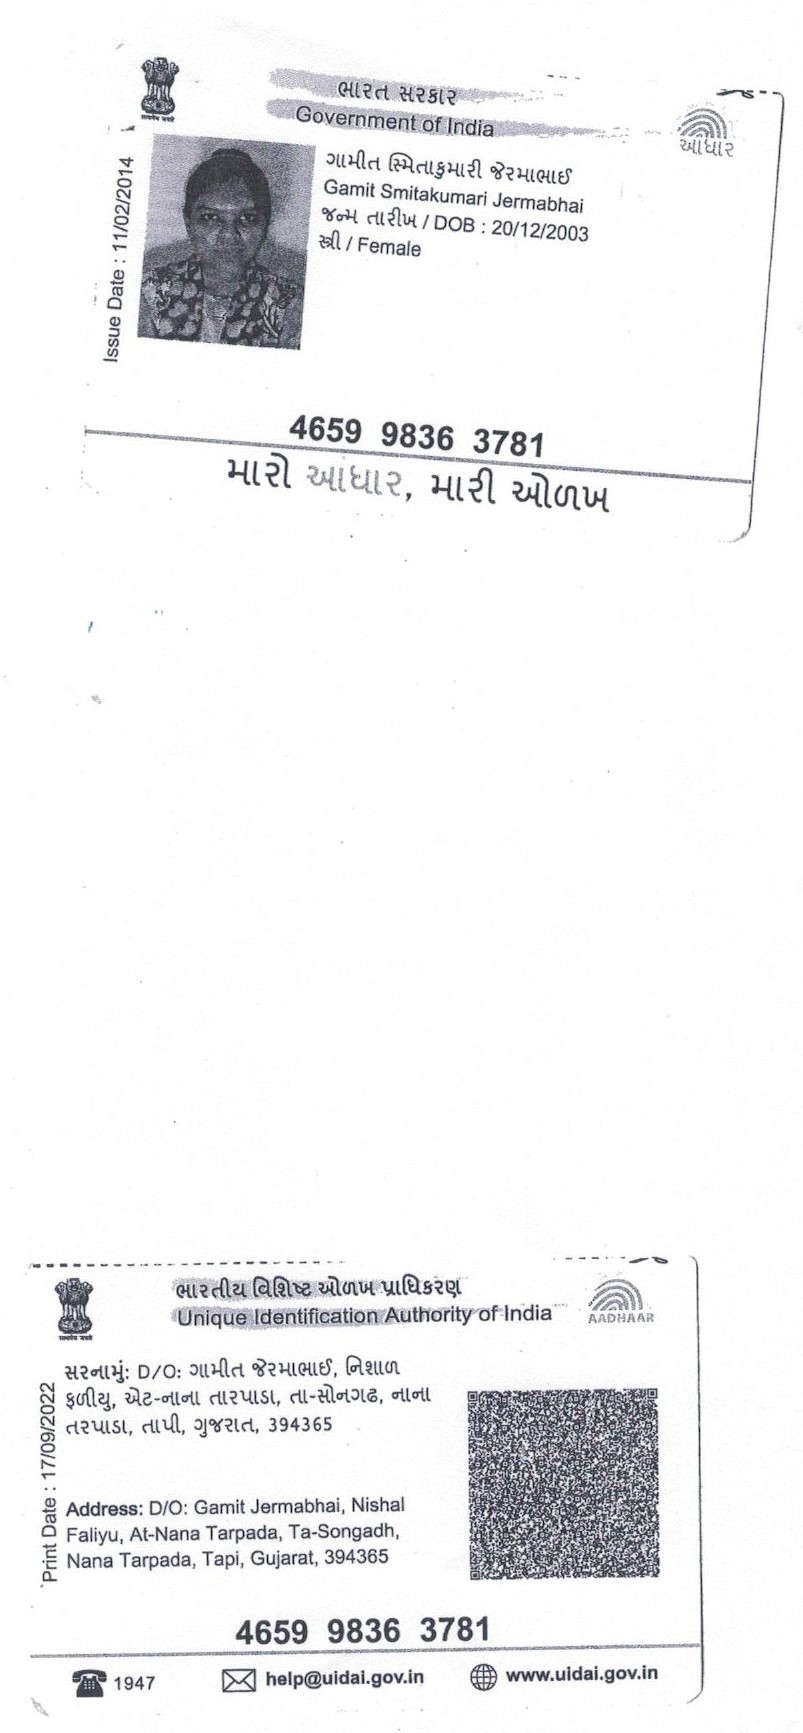 ભારત સરકાર
Government of India
આધાર
Issue Date : 11/02/2014
ગામીત સ્મિતાકુમારી જેરમાભાઈ
Gamit Smitakumari Jermabhai
જન્મ તારીખ / DOB : 20/12/2003
સ્ત્રી / Female
4659 9836 3781
મારો આધાર, મારી ઓળખ
ભારતીય વિશિષ્ટ ઓળખ પ્રાધિકરણ
Unique Identification Authority of India
AADHAAR
Print Date : 17/09/2022
સરનામું: D/O: ગામીત જેરમાભાઈ, નિશાળ
ફળીયુ, એટ-નાના તારપાડા, તા-સોનગઢ, નાના
તરપાડા, તાપી, ગુજરાત, 394365
Address: D/O: Gamit Jermabhai, Nishal
Faliyu, At-Nana Tarpada, Ta-Songadh,
Nana Tarpada, Tapi, Gujarat, 394365
4659 9836 3781
1947
help@uidai.gov.in
www.uidai.gov.in